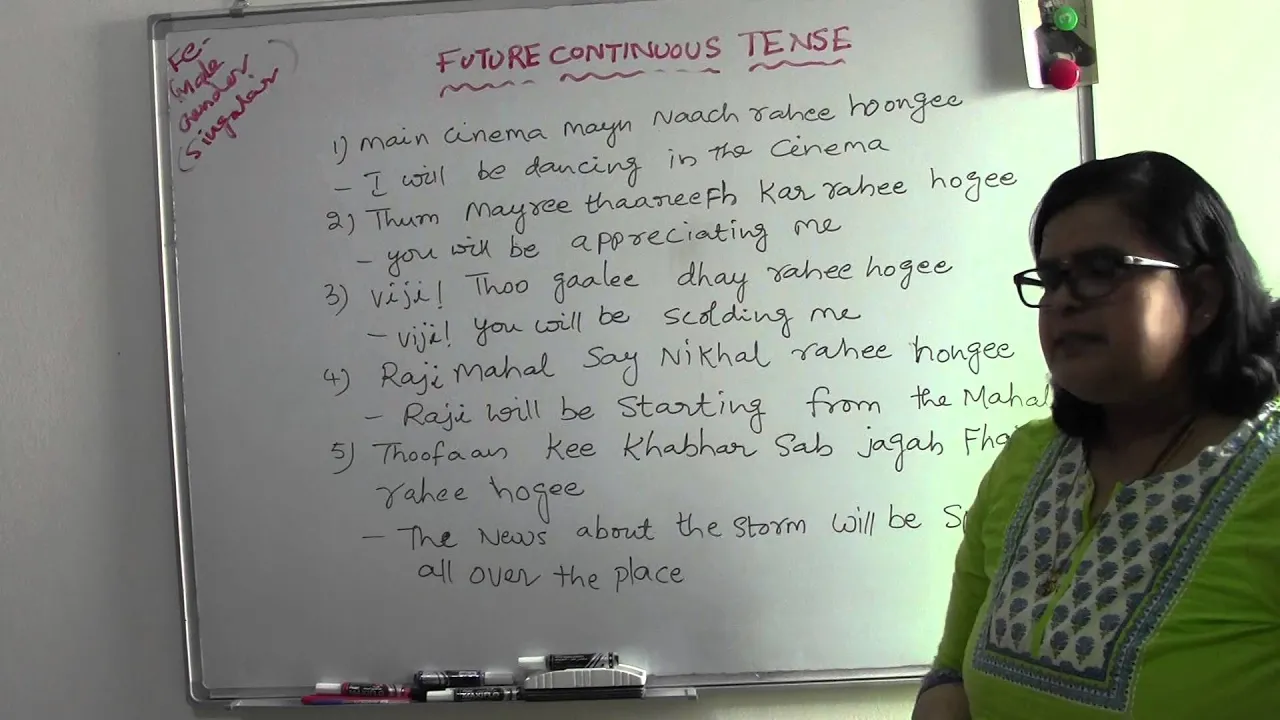 FE-
male
Gender
(Singular)
FUTURE CONTINUOUS TENSE
1) Main Cinema mayn Naach rahee hoongee
- I will be dancing in the Cinema
2) Thum Mayree thaareefh kar rahee hogee
- you will be appreciating me
3) Viji! Thoo gaalee dhay rahee hogee
- Viji! you will be scolding me
4) Raji Mahal Say Nikhal rahee hongee
- Raji will be Starting from the Mahal
5) Thoofaan Kee Khabhar Sab jagah
rahee hogee
- The News about the Storm will be
all over the place